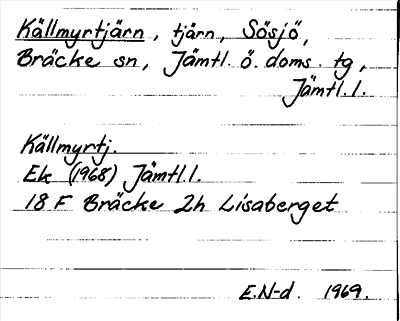 Källmyrtjärn, tjärn, Sösjö,
Bräcke sn, Jämtl. ö. doms. tg,
Jämtl. l.
Källmyrtj.
Ek (1968) Jämtl. l.
18 F Bräcke 2h Lisaberget
E.N-d. 1969.